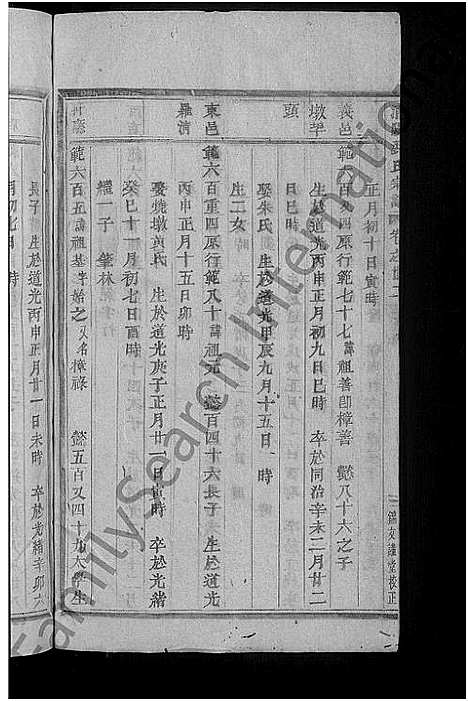 正月初十日寅時
義邑 範六百十四原行範七十七諱祖善卽樟善 懿八十六之子
墩竿 生於道光丙申正月初九日巳時 卒於同治辛未二月廿二
頭 日巳時
娶朱氏 生於道光甲辰九月十五日 時
生二女 卒
東邑 範六百重四原行範八十諱祖元 懿百四十六長子 生於道光
羅淸 丙申正月十五日卯時
娶燒墩黃氏 生於道光庚子正月廿一日寅時 卒於光緒
癸巳十一月初七日酉時
繼一子 筆林
範六百五諱祖基字始之又名樟祿 懿五百又四十九太學生
長子 生於道光丙申正月廿一日未時 卒於光緒辛卯六
月初九日 時
FamilySearch International